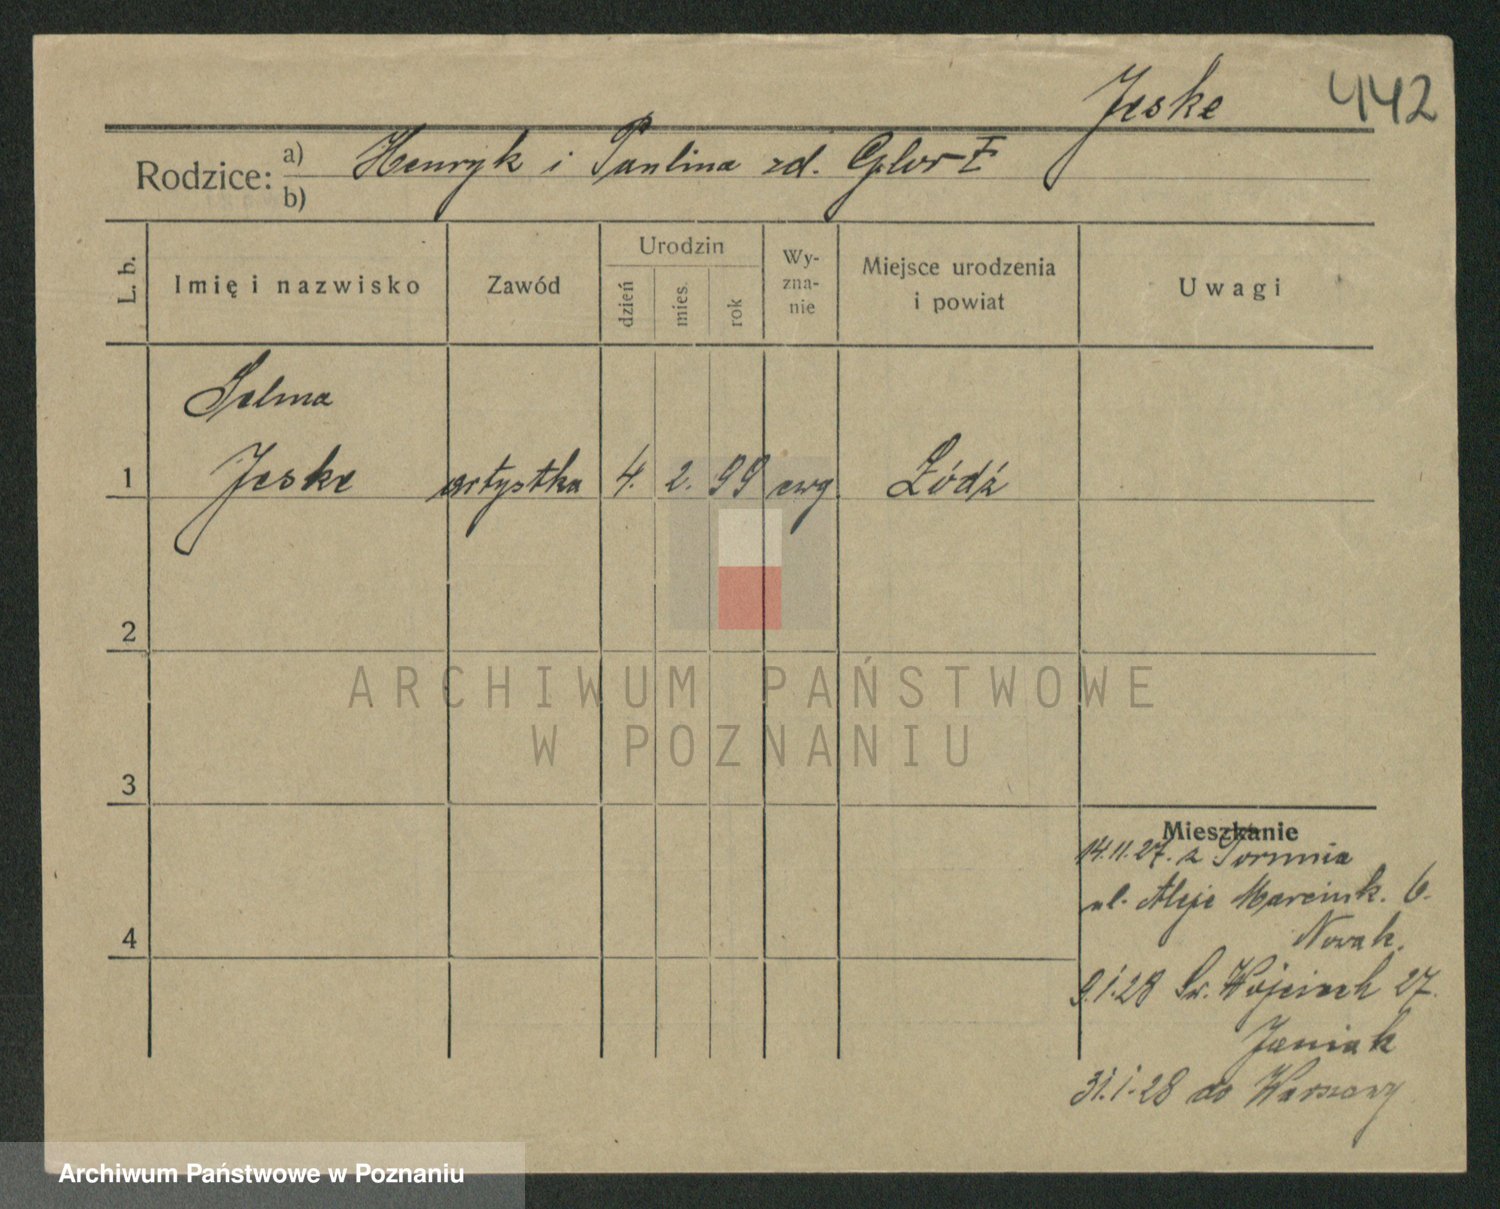 Jeske 442
Rodzice: a) Henryk i Paulina zd.
b)
L. b. Imię i nazwisko Zawód Urodzin dzień mies. rok Wy-zna-nie Miejsce urodzenia i powiat Uwagi
Selma
1 Jeske artystka 4. 2. 99 ewg Łódź
2
ARCHIWUM PAŃSTWOWE
W POZNANIU
3
Mieszkanie
14.11.27. z Torunia
ul. Aleje Marcink. 6.
4
Nowak.
9.1.28 Św. Wojciech 27.
Janiak
31.1.28 do Warszawy
Archiwum Państwowe w Poznaniu